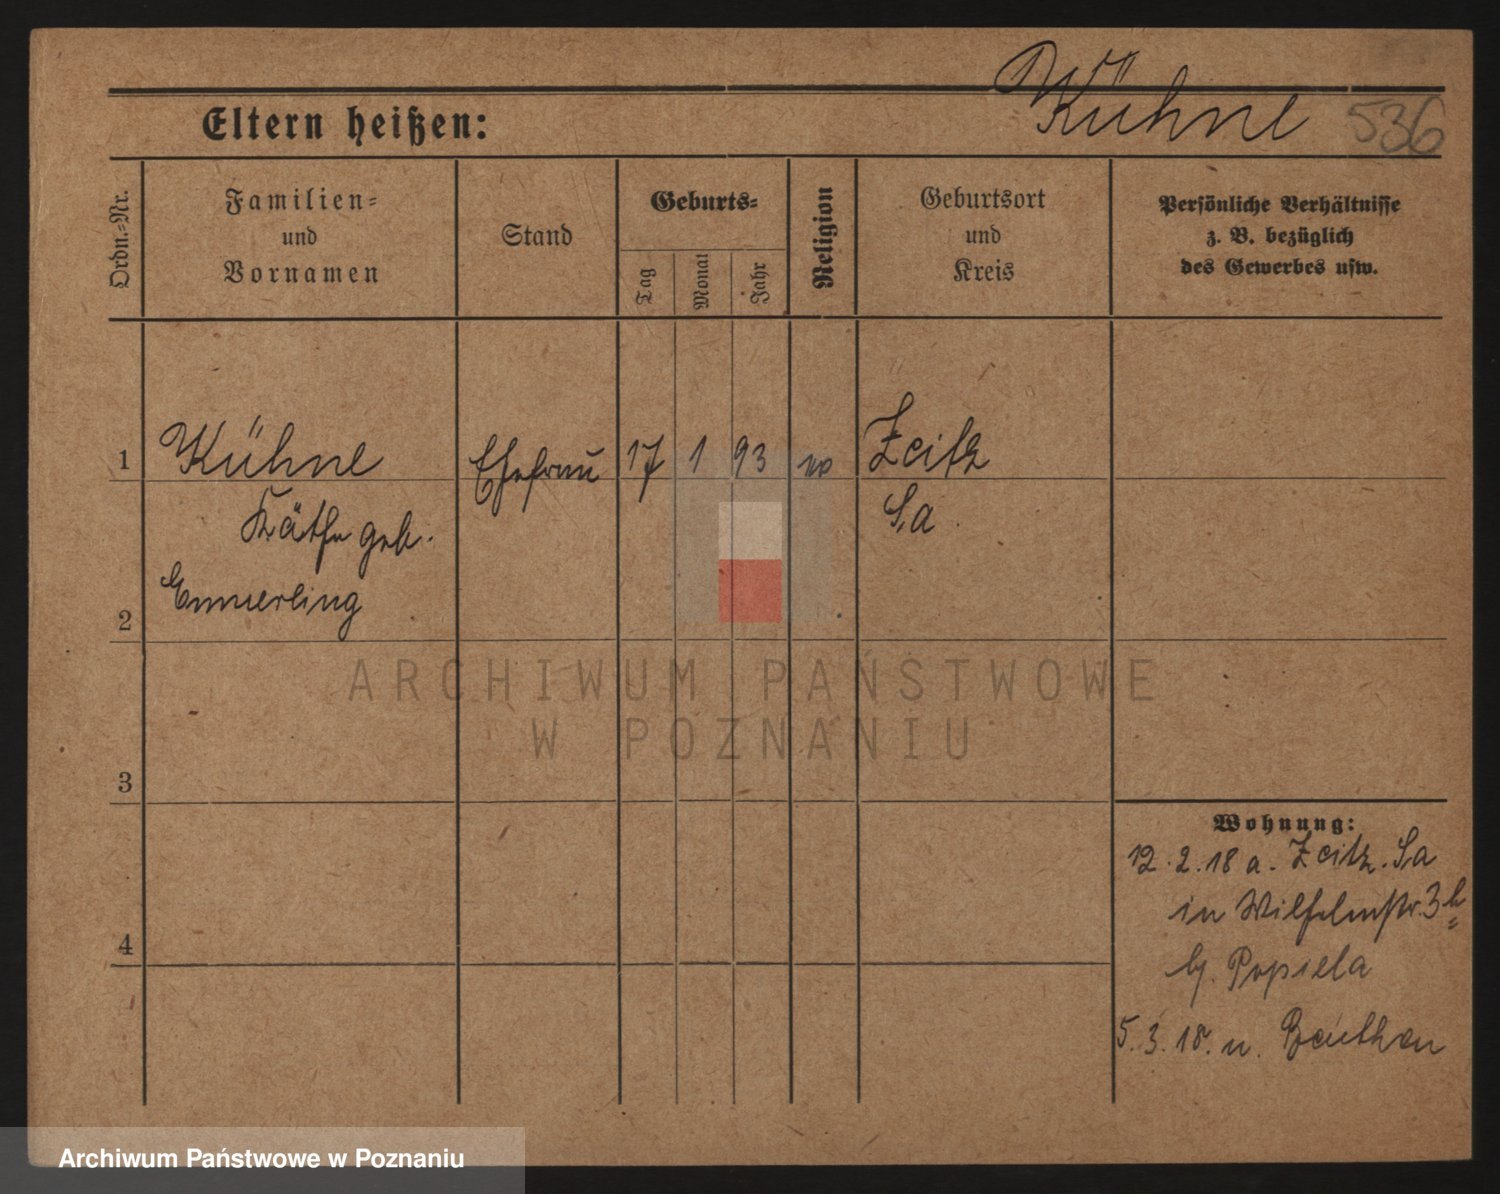 Kühne 536
Eltern heißen:
Ordn.=Nr.
Familien=
und
Vornamen
Stand
Geburts=
Tag
Monat
Jahr
Religion
Geburtsort
und
Kreis
Persönliche Verhältnisse
z. B. bezüglich
des Gewerbes usw.
1 Kühne Ehefrau 17 1 93 Zeitz
Käthe geb. Sa
Emmerling
2
3
4
Wohnung:
12.2.18 a. Zeitz. Sa
in Wilhelmstr. 3
b/. Popiela
5.3.18. n. Beuthen
ARCHIWUM PAŃSTWOWE
W POZNANIU
Archiwum Państwowe w Poznaniu